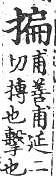 揙
甫善甫延二
切搏也擊也